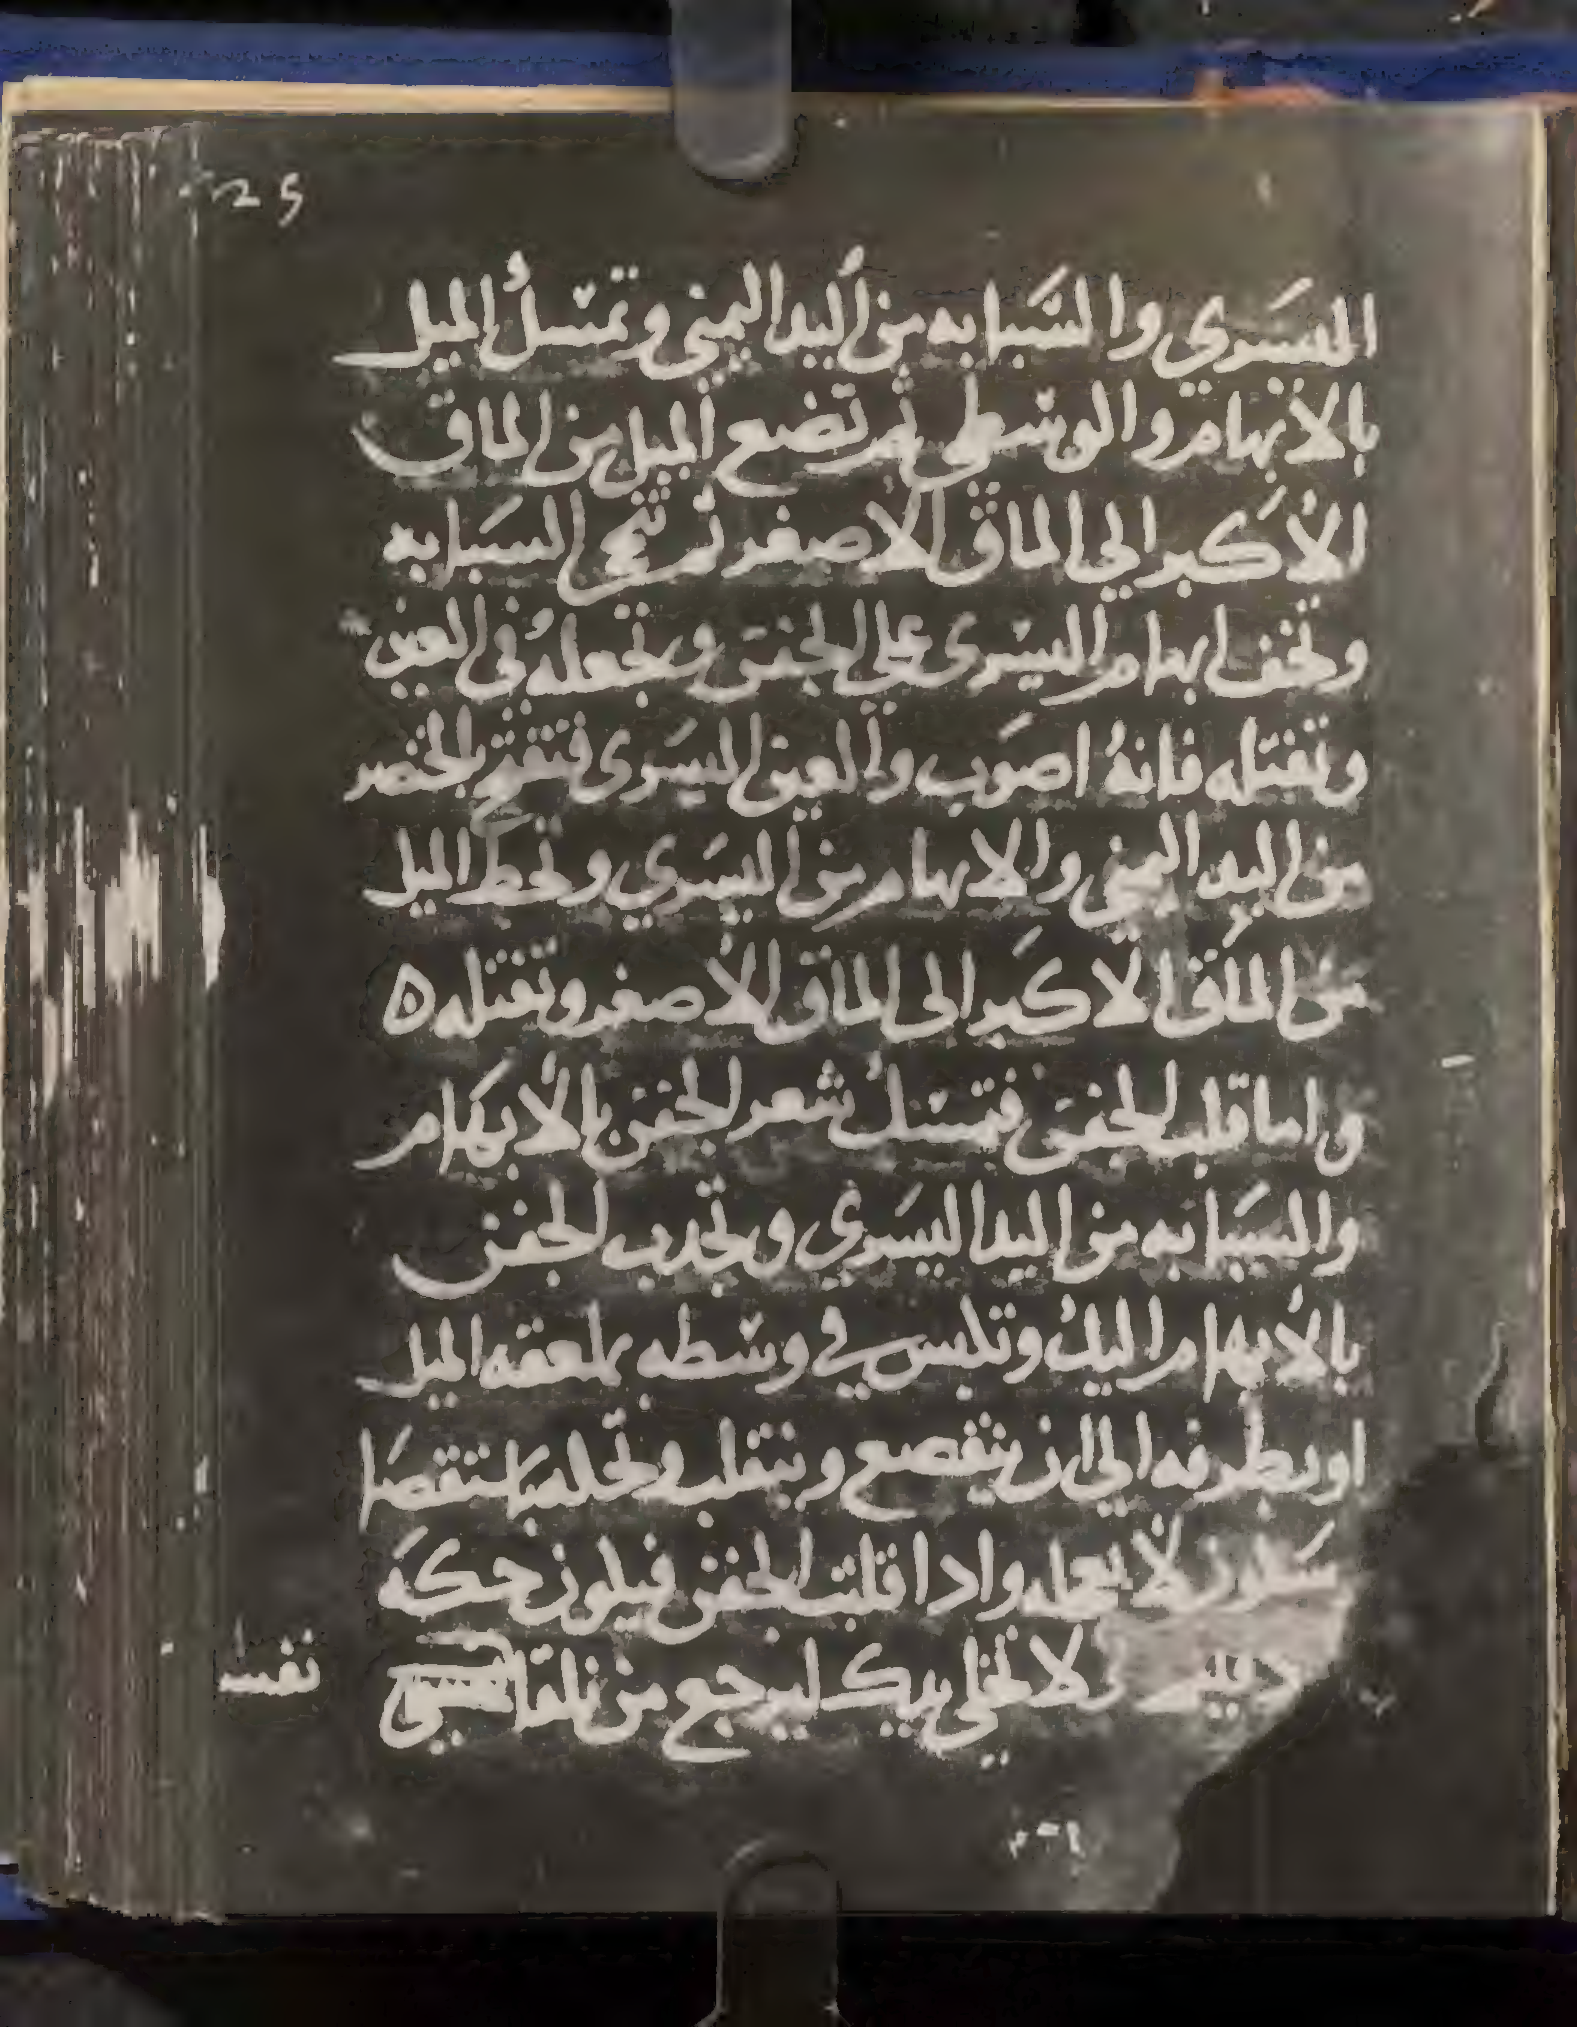 25
اليسري والسبابه من اليد اليمني وتمسك الميل
بالابهام والوسطي ثم تضع الميل من الماق
الاكبر الي الماق الاصغر ثم تنحي السبابه
وتخف ابهام اليسرى علي الجفن وتجعله في العين
وتفتله فانه اصوب والعين اليسرى فتفتح بالخنصر
من اليد اليمني والابهام من اليسري وتحط الميل
من الماق الاكبر الى الماق الاصغر وتفتله ه
واما قلب الجفن فتمسك شعر الجفن بالابهام
والسبابه من اليد اليسري وتجدب الجفن
بالابهام اليك وتلبس في وسطه بملعقه الميل
او بطرفه الي ان ينقصع وينقلب
لا واذا قلبت الجفن فيكون حكه
لا تخلي يديك ليرجع من تلقا
نفسه